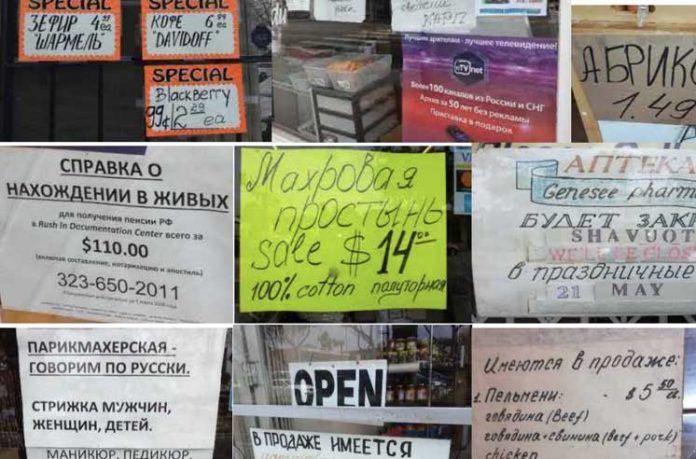 SPECIAL
ЗЕФИР 4 99 ea
"ШАРМЕЛЬ"
SPECIAL
КОФЕ 6 99 ea
"DAVIDOFF"
SPECIAL
BlackBerry
99¢ ea
КАРП
Лучшим зрителям - лучшее телевидение!
eTVnet
Более 100 каналов из России и СНГ
Архив за 50 лет без рекламы
Приставка в подарок
АБРИКО
1.49
СПРАВКА О
НАХОЖДЕНИИ В ЖИВЫХ
для получения пенсии РФ
в Rush In Documentation Center всего за
$110.00
(включая составление, нотаризацию и апостиль)
323-650-2011
Махровая
простынь
sale $14.00
100% cotton полуторная
АПТЕКА
Genesee pharm
БУДЕТ ЗАК
SHAVUOT
WE'LL BE CLOS
в праздничные
21 MAY
ПАРИКМАХЕРСКАЯ -
ГОВОРИМ ПО РУССКИ.
СТРИЖКА МУЖЧИН,
ЖЕНЩИН, ДЕТЕЙ.
МАНИКЮР, ПЕДИКЮР,
OPEN
В ПРОДАЖЕ ИМЕЕТСЯ
Имеются в продаже:
1. Пельмени: - $5 50
говядина (Beef)
говядина+свинина (beef + pork)
chicken